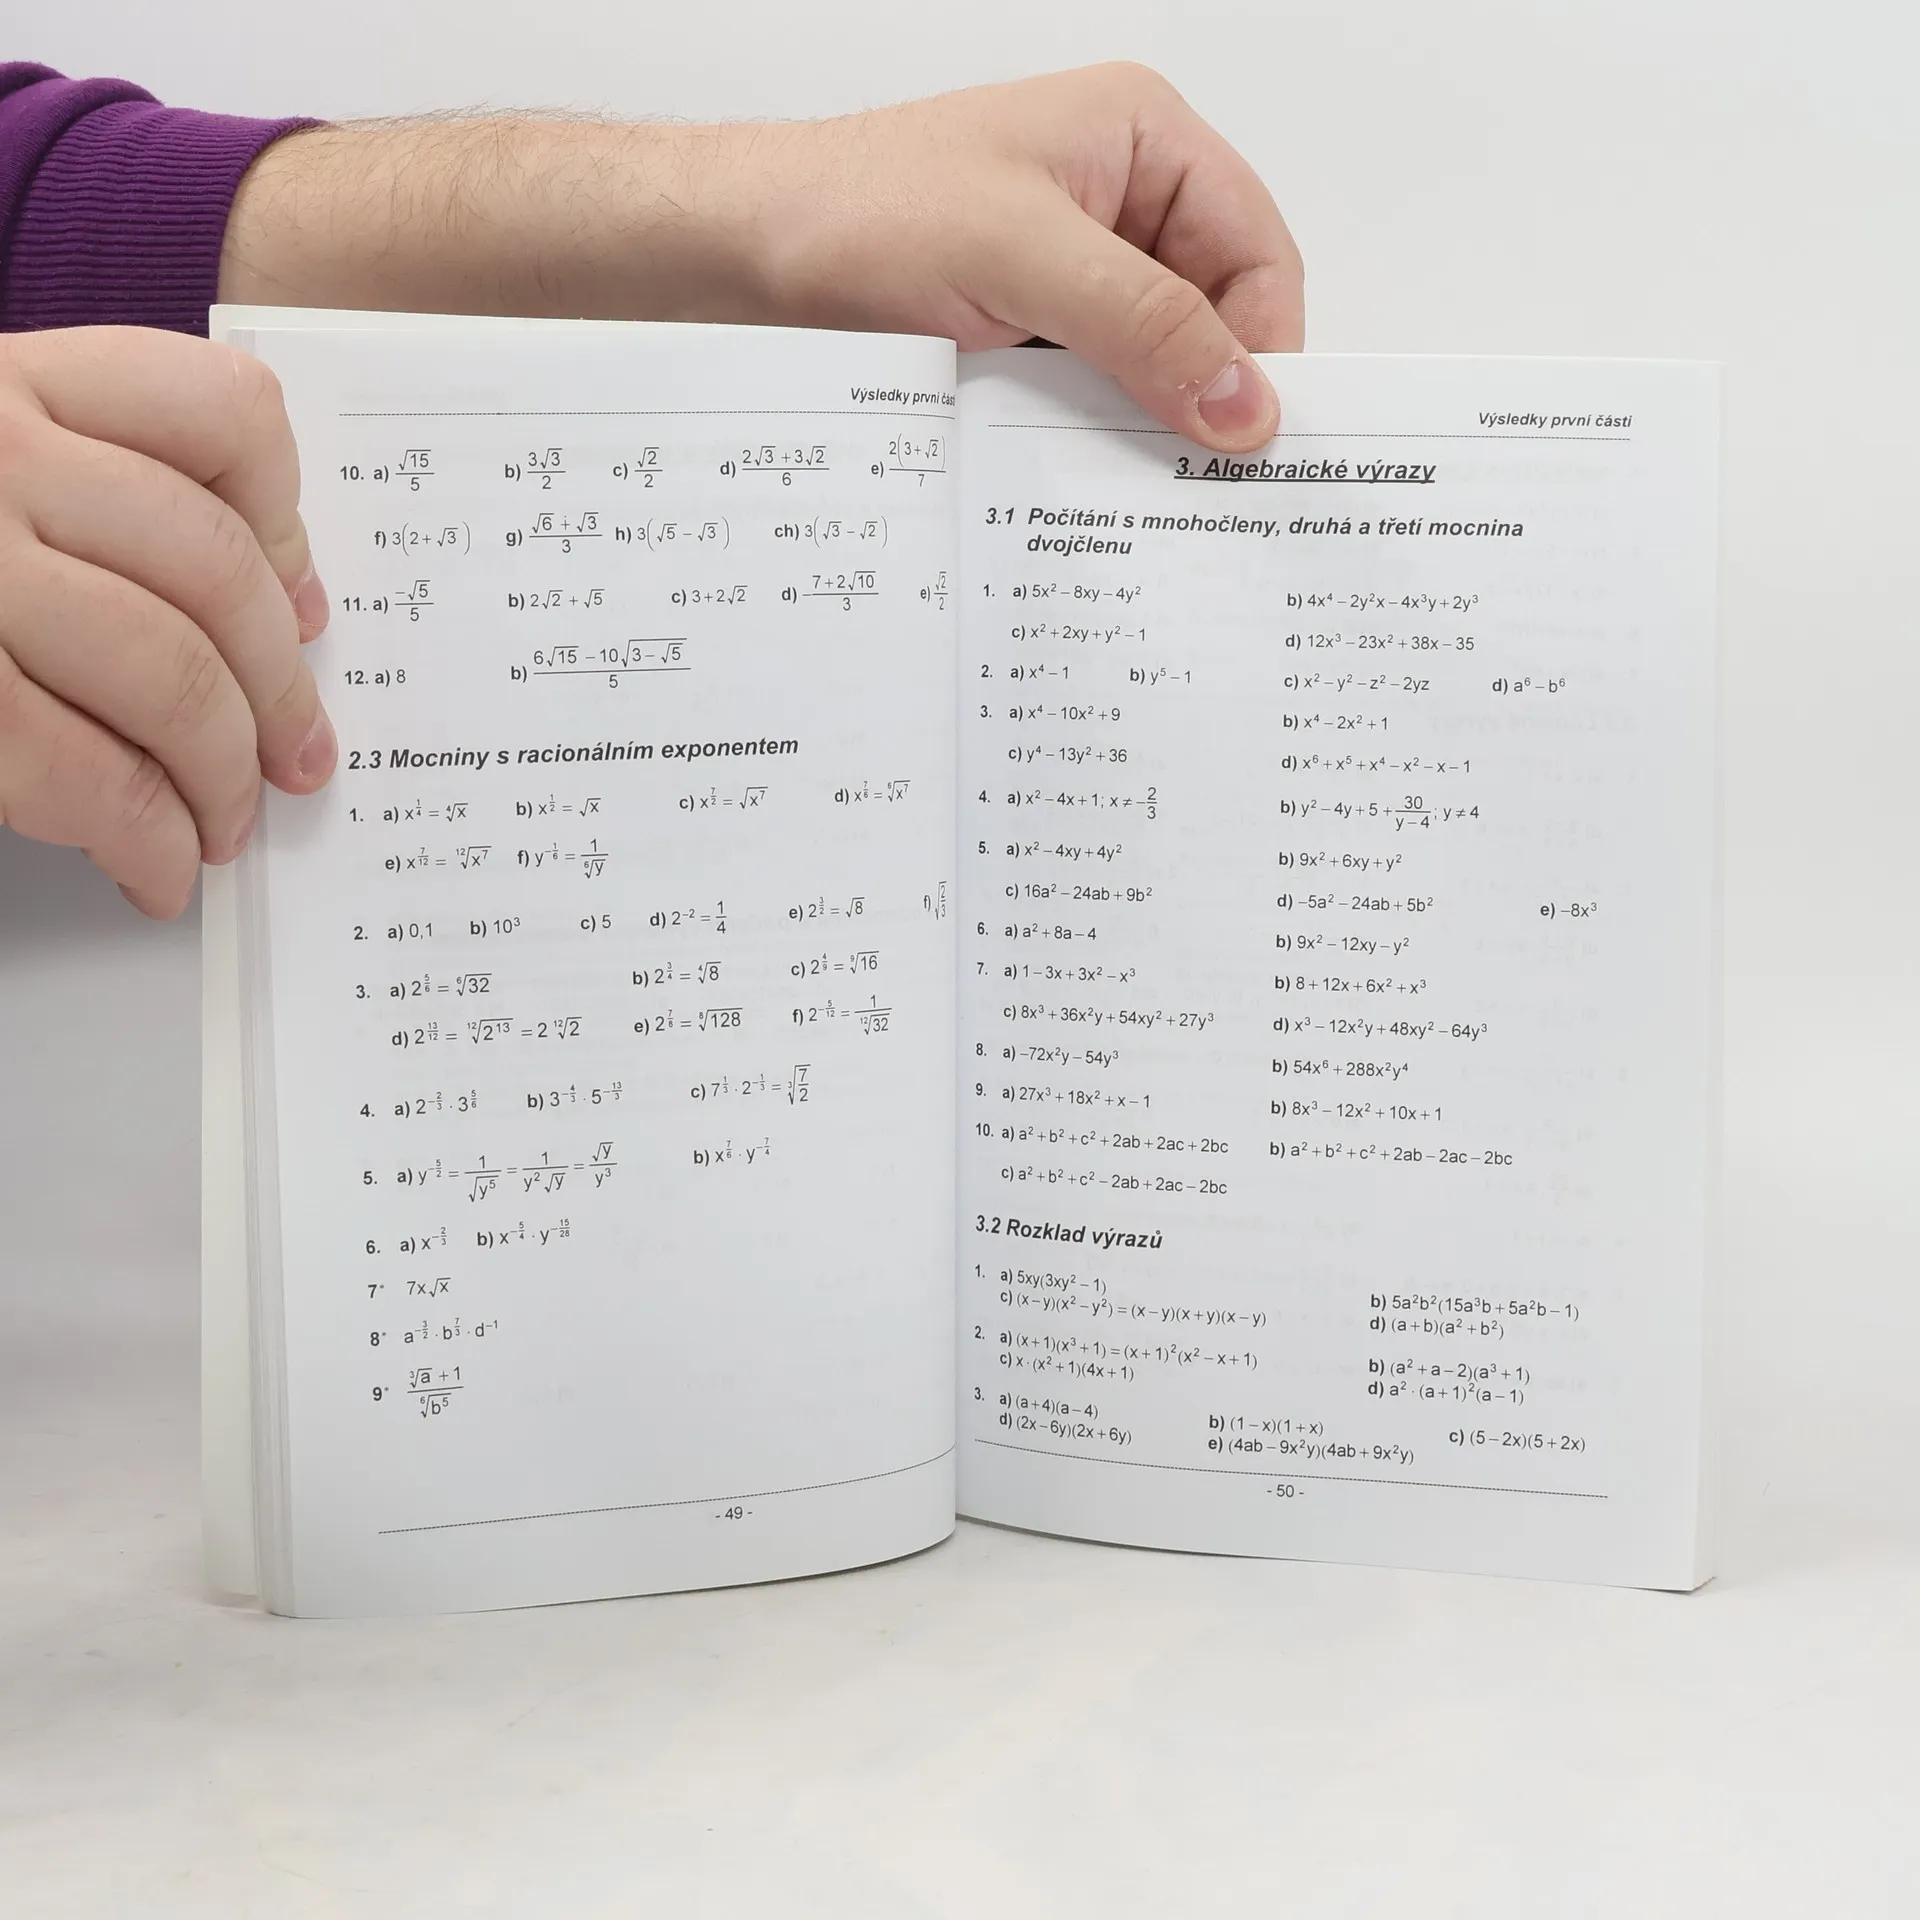 Výsledky první části
10. a) √15/5 b) 3√3/2 c) √2/2 d) (2√3+3√2)/6 e) 2(3+√2)/7
f) 3(2+√3) g) (√6+√3)/3 h) 3(√5−√3) ch) 3(√3−√2)
11. a) −√5/5 b) 2√2+√5 c) 3+2√2 d) −(7+2√10)/3 e) √2/2
12. a) 8 b) (6√15−10√(3−√5))/5
2.3 Mocniny s racionálním exponentem
1. a) x^(1/4) = ⁴√x b) x^(1/2) = √x c) x^(7/2) = √x⁷ d) x^(7/6) = ⁶√x⁷
e) x^(7/12) = ¹²√x⁷ f) y^(−1/6) = 1/⁶√y
2. a) 0,1 b) 10³ c) 5 d) 2⁻² = 1/4 e) 2^(3/2) = √8 f) √(2/3)
3. a) 2^(5/6) = ⁶√32 b) 2^(3/4) = ⁴√8 c) 2^(4/9) = ⁹√16
d) 2^(13/12) = ¹²√2¹³ = 2 ¹²√2 e) 2^(7/6) = ⁶√128 f) 2^(−5/12) = 1/¹²√32
4. a) 2^(−2/3) · 3^(5/6) b) 3^(−4/3) · 5^(−13/3) c) 7^(1/3) · 2^(−1/3) = ³√(7/2)
5. a) y^(−5/2) = 1/√y⁵ = 1/(y²√y) = √y/y³ b) x^(7/6) · y^(−7/4)
6. a) x^(−2/3) b) x^(−5/4) · y^(−15/28)
7* 7x√x
8* a^(−3/2) · b^(7/3) · d⁻¹
9* (³√a + 1)/⁶√b⁵
- 49 -
Výsledky první části
3. Algebraické výrazy
3.1 Počítání s mnohočleny, druhá a třetí mocnina
dvojčlenu
1. a) 5x² − 8xy − 4y² b) 4x⁴ − 2y²x − 4x³y + 2y³
c) x² + 2xy + y² − 1 d) 12x³ − 23x² + 38x − 35
2. a) x⁴ − 1 b) y⁵ − 1 c) x² − y² − z² − 2yz d) a⁶ − b⁶
3. a) x⁴ − 10x² + 9 b) x⁴ − 2x² + 1
c) y⁴ − 13y² + 36 d) x⁶ + x⁵ + x⁴ − x² − x − 1
4. a) x² − 4x + 1; x ≠ −2/3 b) y² − 4y + 5 + 30/(y−4); y ≠ 4
5. a) x² − 4xy + 4y² b) 9x² + 6xy + y²
c) 16a² − 24ab + 9b² d) −5a² − 24ab + 5b² e) −8x³
6. a) a² + 8a − 4 b) 9x² − 12xy − y²
7. a) 1 − 3x + 3x² − x³ b) 8 + 12x + 6x² + x³
c) 8x³ + 36x²y + 54xy² + 27y³ d) x³ − 12x²y + 48xy² − 64y³
8. a) −72x²y − 54y³ b) 54x⁶ + 288x²y⁴
9. a) 27x³ + 18x² + x − 1 b) 8x³ − 12x² + 10x + 1
10. a) a² + b² + c² + 2ab + 2ac + 2bc b) a² + b² + c² + 2ab − 2ac − 2bc
c) a² + b² + c² − 2ab + 2ac − 2bc
3.2 Rozklad výrazů
1. a) 5xy(3xy² − 1) b) 5a²b²(15a³b + 5a²b − 1)
c) (x − y)(x² − y²) = (x − y)(x + y)(x − y) d) (a + b)(a² + b²)
2. a) (x + 1)(x³ + 1) = (x + 1)²(x² − x + 1) b) (a² + a − 2)(a³ + 1)
c) x · (x² + 1)(4x + 1) d) a² · (a + 1)²(a − 1)
3. a) (a + 4)(a − 4) b) (1 − x)(1 + x) c) (5 − 2x)(5 + 2x)
d) (2x − 6y)(2x + 6y) e) (4ab − 9x²y)(4ab + 9x²y)
- 50 -